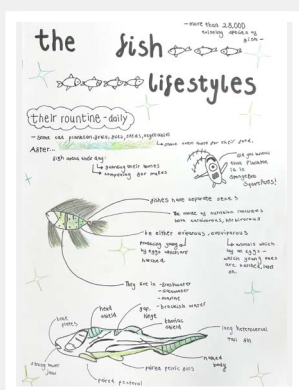 the fish
- more than 28,000
existing species of
fish -
lifestyles
their rountine - daily
- some eat plankton, fruits, nuts, seeds, vegetables
some even hunt for their food.
After...
fish areas their day:
↳ guarding their homes
↳ competing for mates
did you know
that Plankton
is in
SpongeBob
Squarepants!
fishes have separate sexes
the mode of nutrition includes
both carnivorous, herbivorous
be either viviparous, ovoviviparous
producing young
by eggs which are
hatched
↳ animals which
lay
eggs -
which young ones
are hatched
They live in - freshwater
- saltwater
- marine
- brackish water
head
shield
gap,
hinge
thoracic
shield
long heterocercal
tail
plates
strong lower
jaw
paired pectoral
paired pelvic fins
naked
body